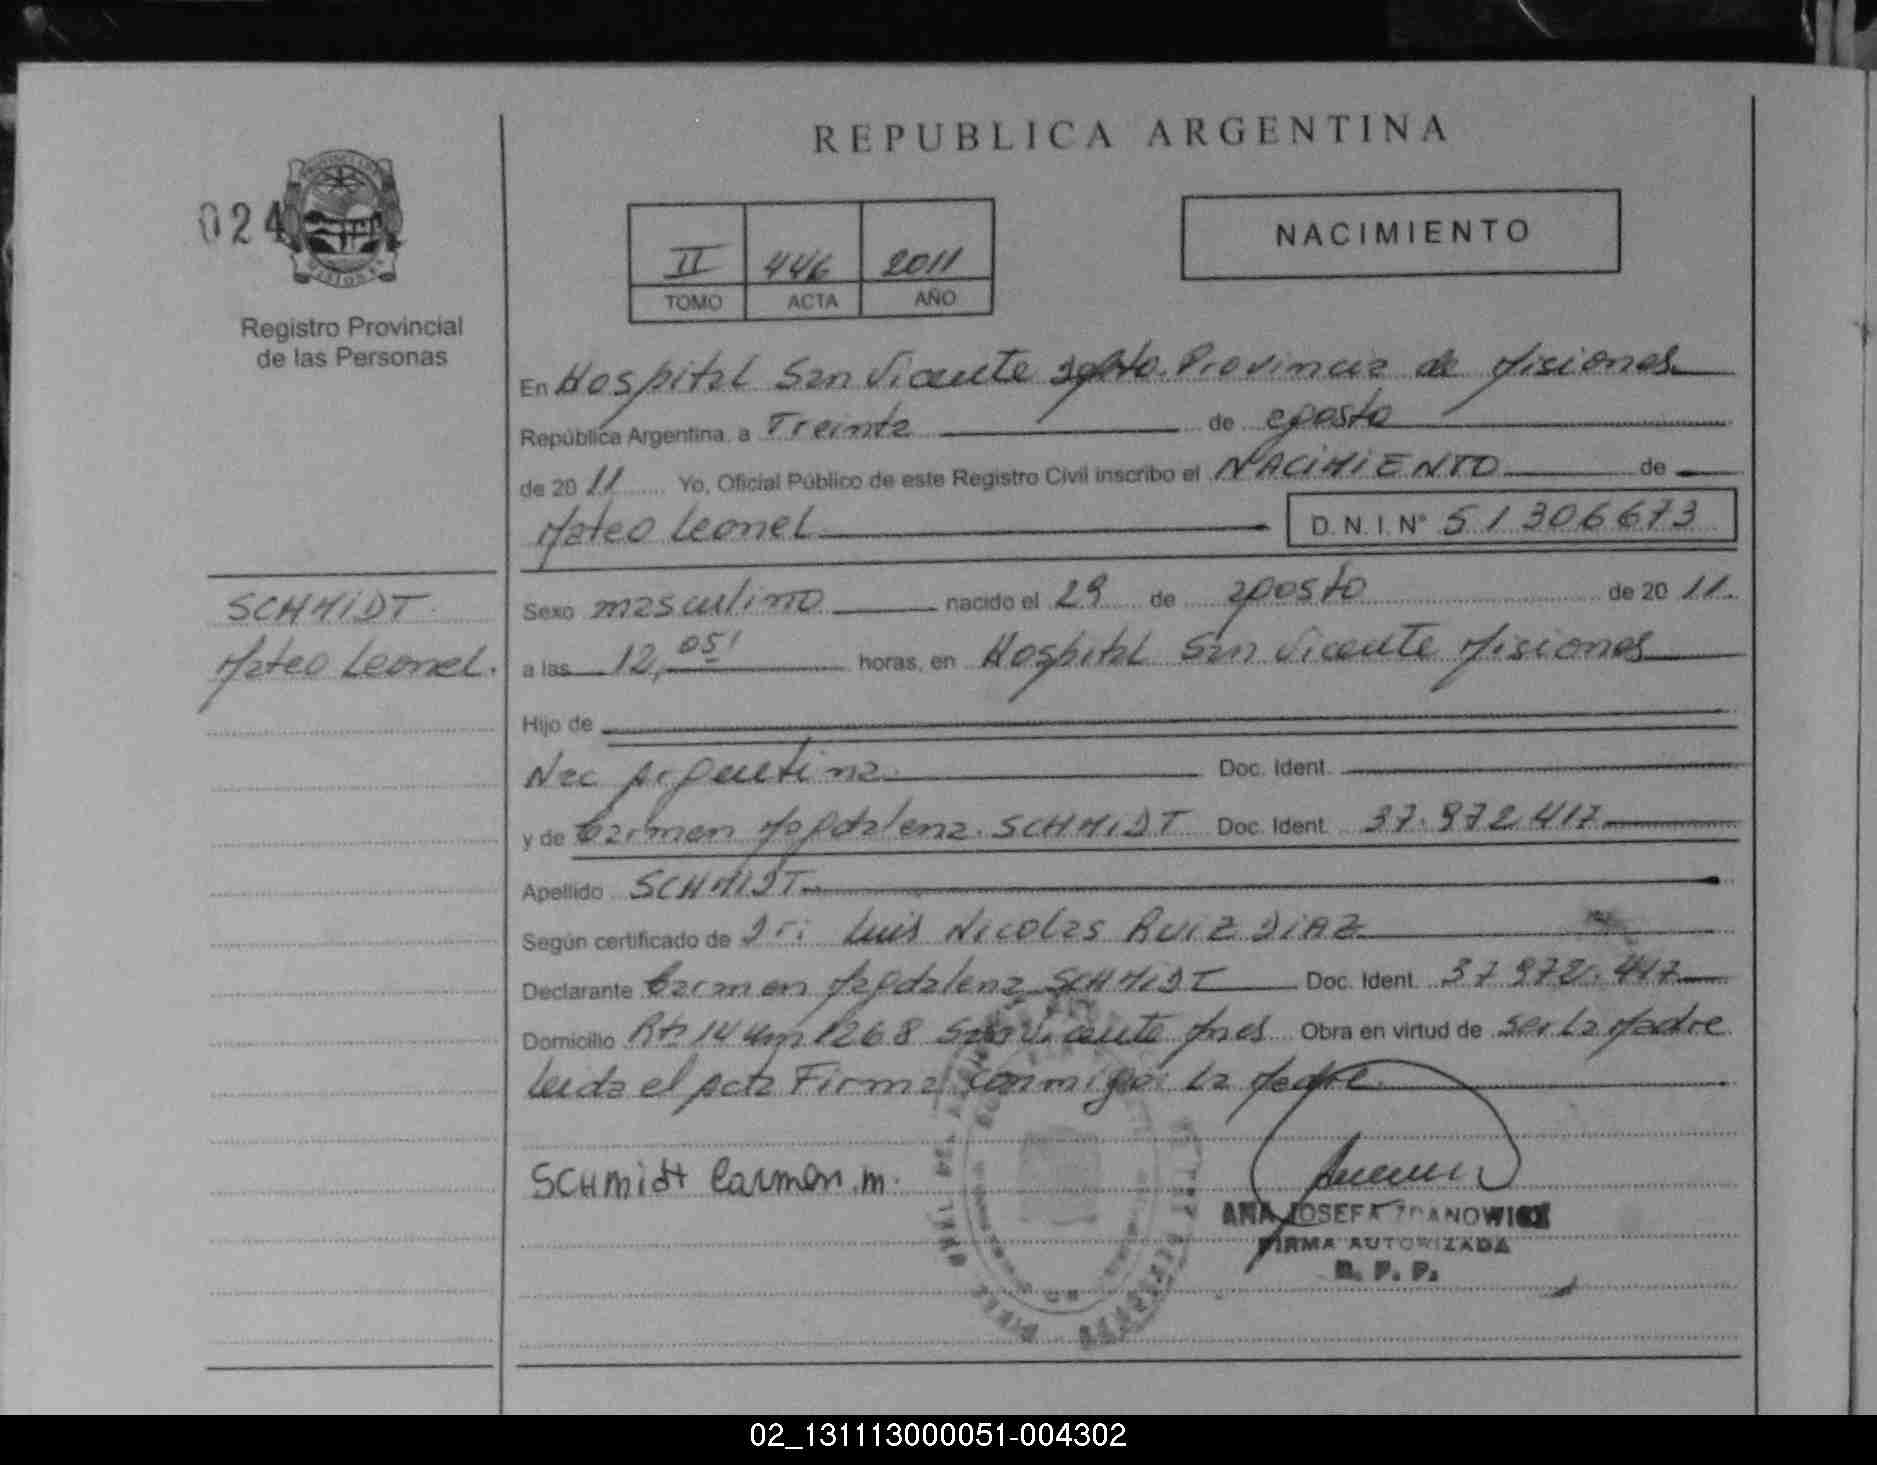 REPUBLICA ARGENTINA
024
NACIMIENTO
II 446 2011
TOMO ACTA AÑO
Registro Provincial
de las Personas
En Hospital San Vicente Provincia de Misiones
República Argentina, a Treinta de agosto
de 2011 Yo, Oficial Público de este Registro Civil inscribo el NACIMIENTO de
Mateo Leonel D. N. I. N° 51306673
SCHMIDT
Mateo Leonel.
Sexo masculino nacido el 29 de agosto de 2011.
a las 12,05' horas, en Hospital San Vicente Misiones
Hijo de
Nac Argentina Doc. Ident.
y de Carmen Magdalena SCHMIDT Doc. Ident. 37.972.417
Apellido SCHMIDT
Según certificado de Dr: Luis Nicolas RUIZ DIAZ
Declarante Carmen Magdalena SCHMIDT Doc. Ident. 37972.417
Domicilio Rta 14 km 1268 San Vicente Mnes Obra en virtud de ser la Madre
Leida el acta Firma conmigo: La Madre.
SCHmidt Carmen.m.
ANA JOSEFA ZDANOWICZ
FIRMA AUTORIZADA
R. P. P.
02_131113000051-004302